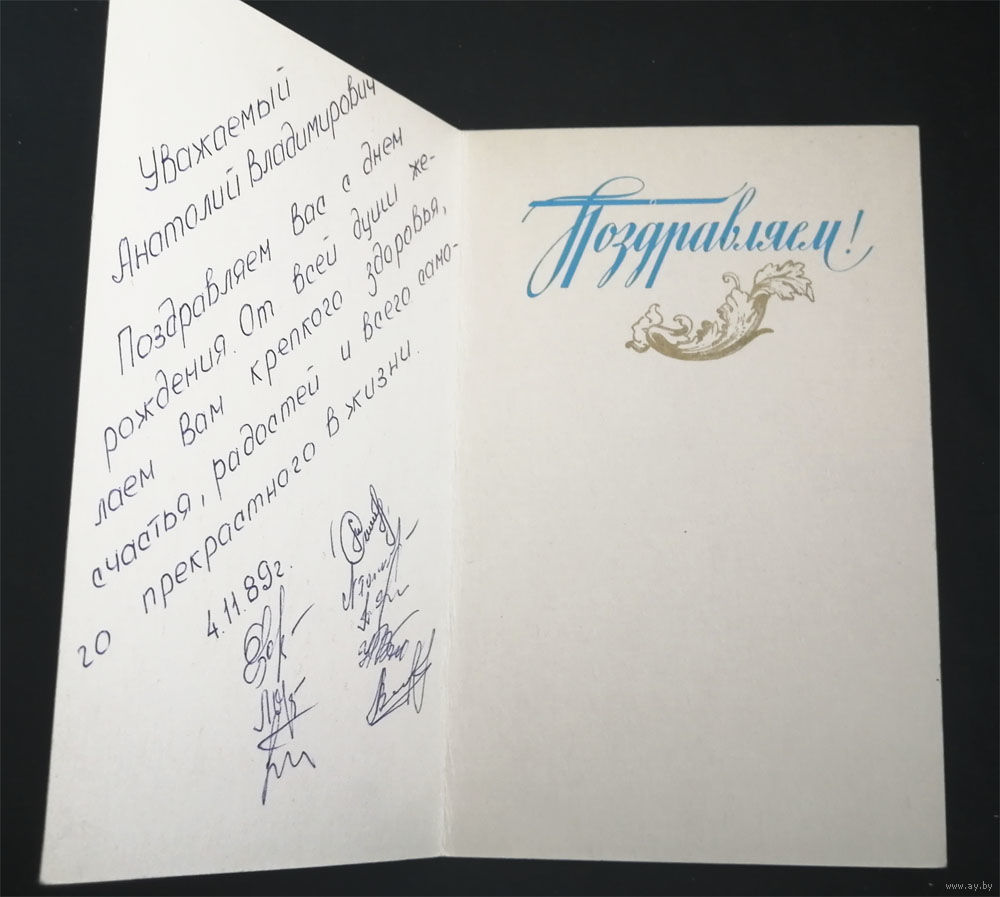 Уважаемый
Анатолий Владимирович
Поздравляем Вас с днем
рождения. От всей души же-
лаем вам крепкого здоровья,
счастья, радостей и всего само-
го прекрастного в жизни.
4.11.89г.
Поздравляем!
www.ay.by